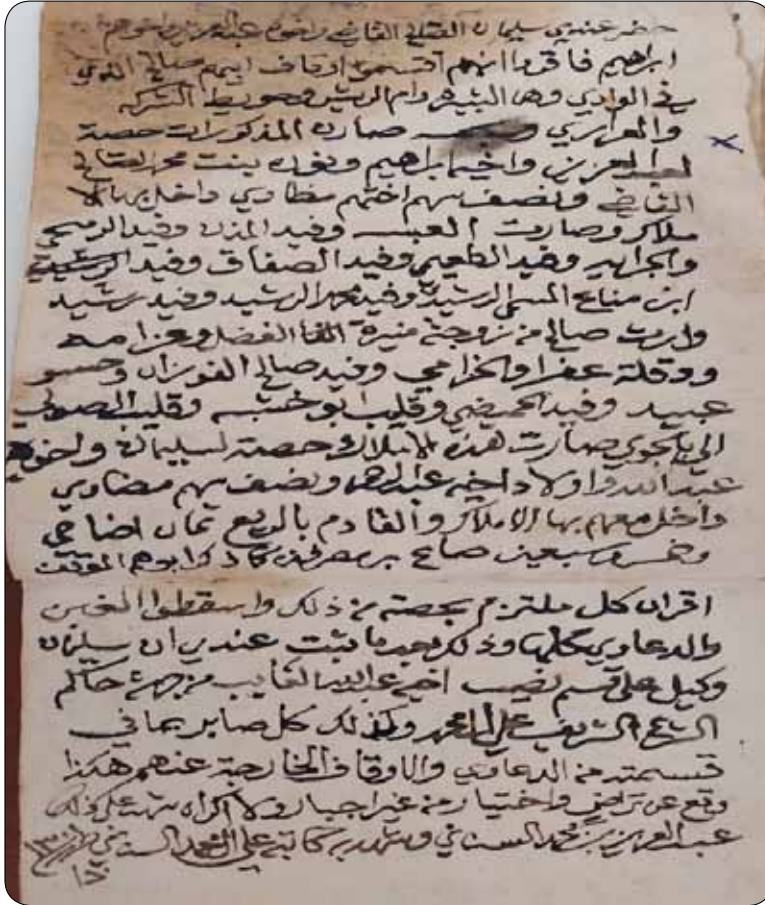 حضر عندي سليمان الفتلي القاضي واخوه عبد العزيز واخوهم
ابراهيم فاقروا انهم اقتسموا اوقاف ابيهم صالح الذي
في الوادي وهن البثيره وام الريش وحويط الشركه
والعرايري صارن المذكورات حصة
لعبد العزيز واخيه ابراهيم ونوره بنت محمد
القاضي ونصف سهم اختهم مضاوي واخل بها
ملاكر وصارت وفيد المزن وفيد الرميحي
وفيد الطعيمي وفيد الصفاق وفيد الرشيد
ابن مناع المسمى الرشيد وفيد محمد الرشيد وفيد رشيد
وارث صالح من زوجتة منيرة الفضل
عفرا والخزامي وفيد صالح الفوزان وحسو
عبيد وفيد الحميضي وقليب ابو خشبه وقليب الصولي
صارت هذه الاملاك حصة لسليمان واخوه
عبد الله واولاد اخيه عبد الرحمن ونصف سهم مضاوي
واخل معهم بها الاملاك والقادم بالربيع ثمان اضاحي
وخمس وسبعين صاع بر كما ذكر ابوهم الموقف
اقران كل ملتزم بحصته من ذلك واسقطوا الغبن
والدعاوي كلها وذلك بعد ما ثبت عندي ان سليمان
وكيل على قسم نصيب اخيه عبد الله الغايب من جهة حاكم
الشرع الشريف علي المحمد وكذلك كل صابر بما في
قسمته من الدعاوي والاوقاف الخارجة عنهم هكذا
وقع عن تراضي واختيار من غير اجبار ولا اكراه شهد على ذلك
عبد العزيز بن محمد السناني وشهد به كاتبه علي المحمد السناني